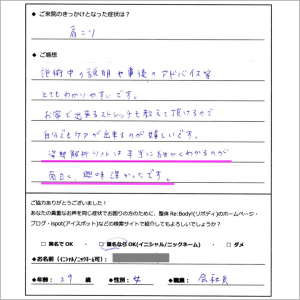 ◆ ご来院のきっかけとなった症状は？
肩こり
◆ ご感想
施術中の説明や事後のアドバイス等
とてもわかりやすいです。
お家で出来るストレッチも教えて頂けるので
自分でもケアが出来るのが嬉しいです。
姿勢解析ソフトは本当に細かくわかるのが
面白く、興味深かったです。
ご協力ありがとうございました！
あなたの貴重なお声を同じ症状でお困りの方のために、整体 Re:Body!(リボディ)のホームページ・
ブログ・ispot(アイスポット)などの検索サイトで紹介してもよろしいでしょうか？
・実名で OK ・匿名なら OK(イニシャル/ニックネーム) ・ダメ
◆お名前 (イニシャル/ニックネーム可)：
◆年齢： 39 歳 ◆性別： 女 ◆職業： 会社員